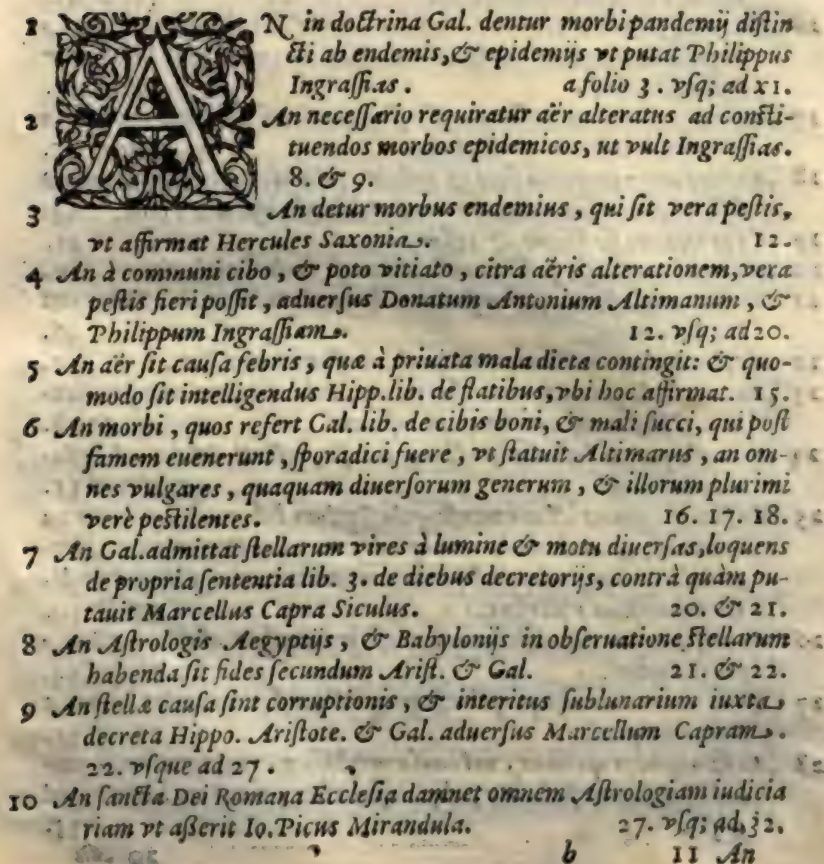 1 AN in doctrina Gal. dentur morbi pandemij distin
cti ab endemis, & epidemijs vt putat Philippus
Ingrassias. a folio 3. vsq; ad xi.
2 An necessario requiratur aër alteratus ad consti-
tuendos morbos epidemicos, ut vult Ingrassias.
8. & 9.
3 An detur morbus endemius, qui sit vera pestis,
vt affirmat Hercules Saxonia. 12.
4 An à communi cibo, & poto vitiato, citra aëris alterationem, vera
pestis fieri possit, aduersus Donatum Antonium Altimanum, &
Philippum Ingrassiam. 12. vsq; ad 20.
5 An aër sit causa febris, quæ à priuata mala dieta contingit: & quo-
modo sit intelligendus Hipp. lib. de flatibus, vbi hoc affirmat. 15.
6 An morbi, quos refert Gal. lib. de cibis boni, & mali succi, qui post
famem euenerunt, sporadici fuere, vt statuit Altimarus, an om-
nes vulgares, quaquam diuersorum generum, & illorum plurimi
verè pestilentes. 16. 17. 18.
7 An Gal. admittat stellarum vires à lumine & motu diuersas, loquens
de propria sententia lib. 3. de diebus decretorijs, contrà quàm pu-
tauit Marcellus Capra Siculus. 20. & 21.
8 An Astrologis Aegyptijs, & Babylonijs in obseruatione stellarum
habenda sit fides secundum Arist. & Gal. 21. & 22.
9 An stellæ causa sint corruptionis, & interitus sublunarium iuxta
decreta Hippo. Aristote. & Gal. aduersus Marcellum Capram.
22. vsque ad 27.
10 An sancta Dei Romana Ecclesia damnet omnem Astrologiam iudicia
riam vt aßerit Io. Picus Mirandula. 27. vsq; ad 32.
b 11 An